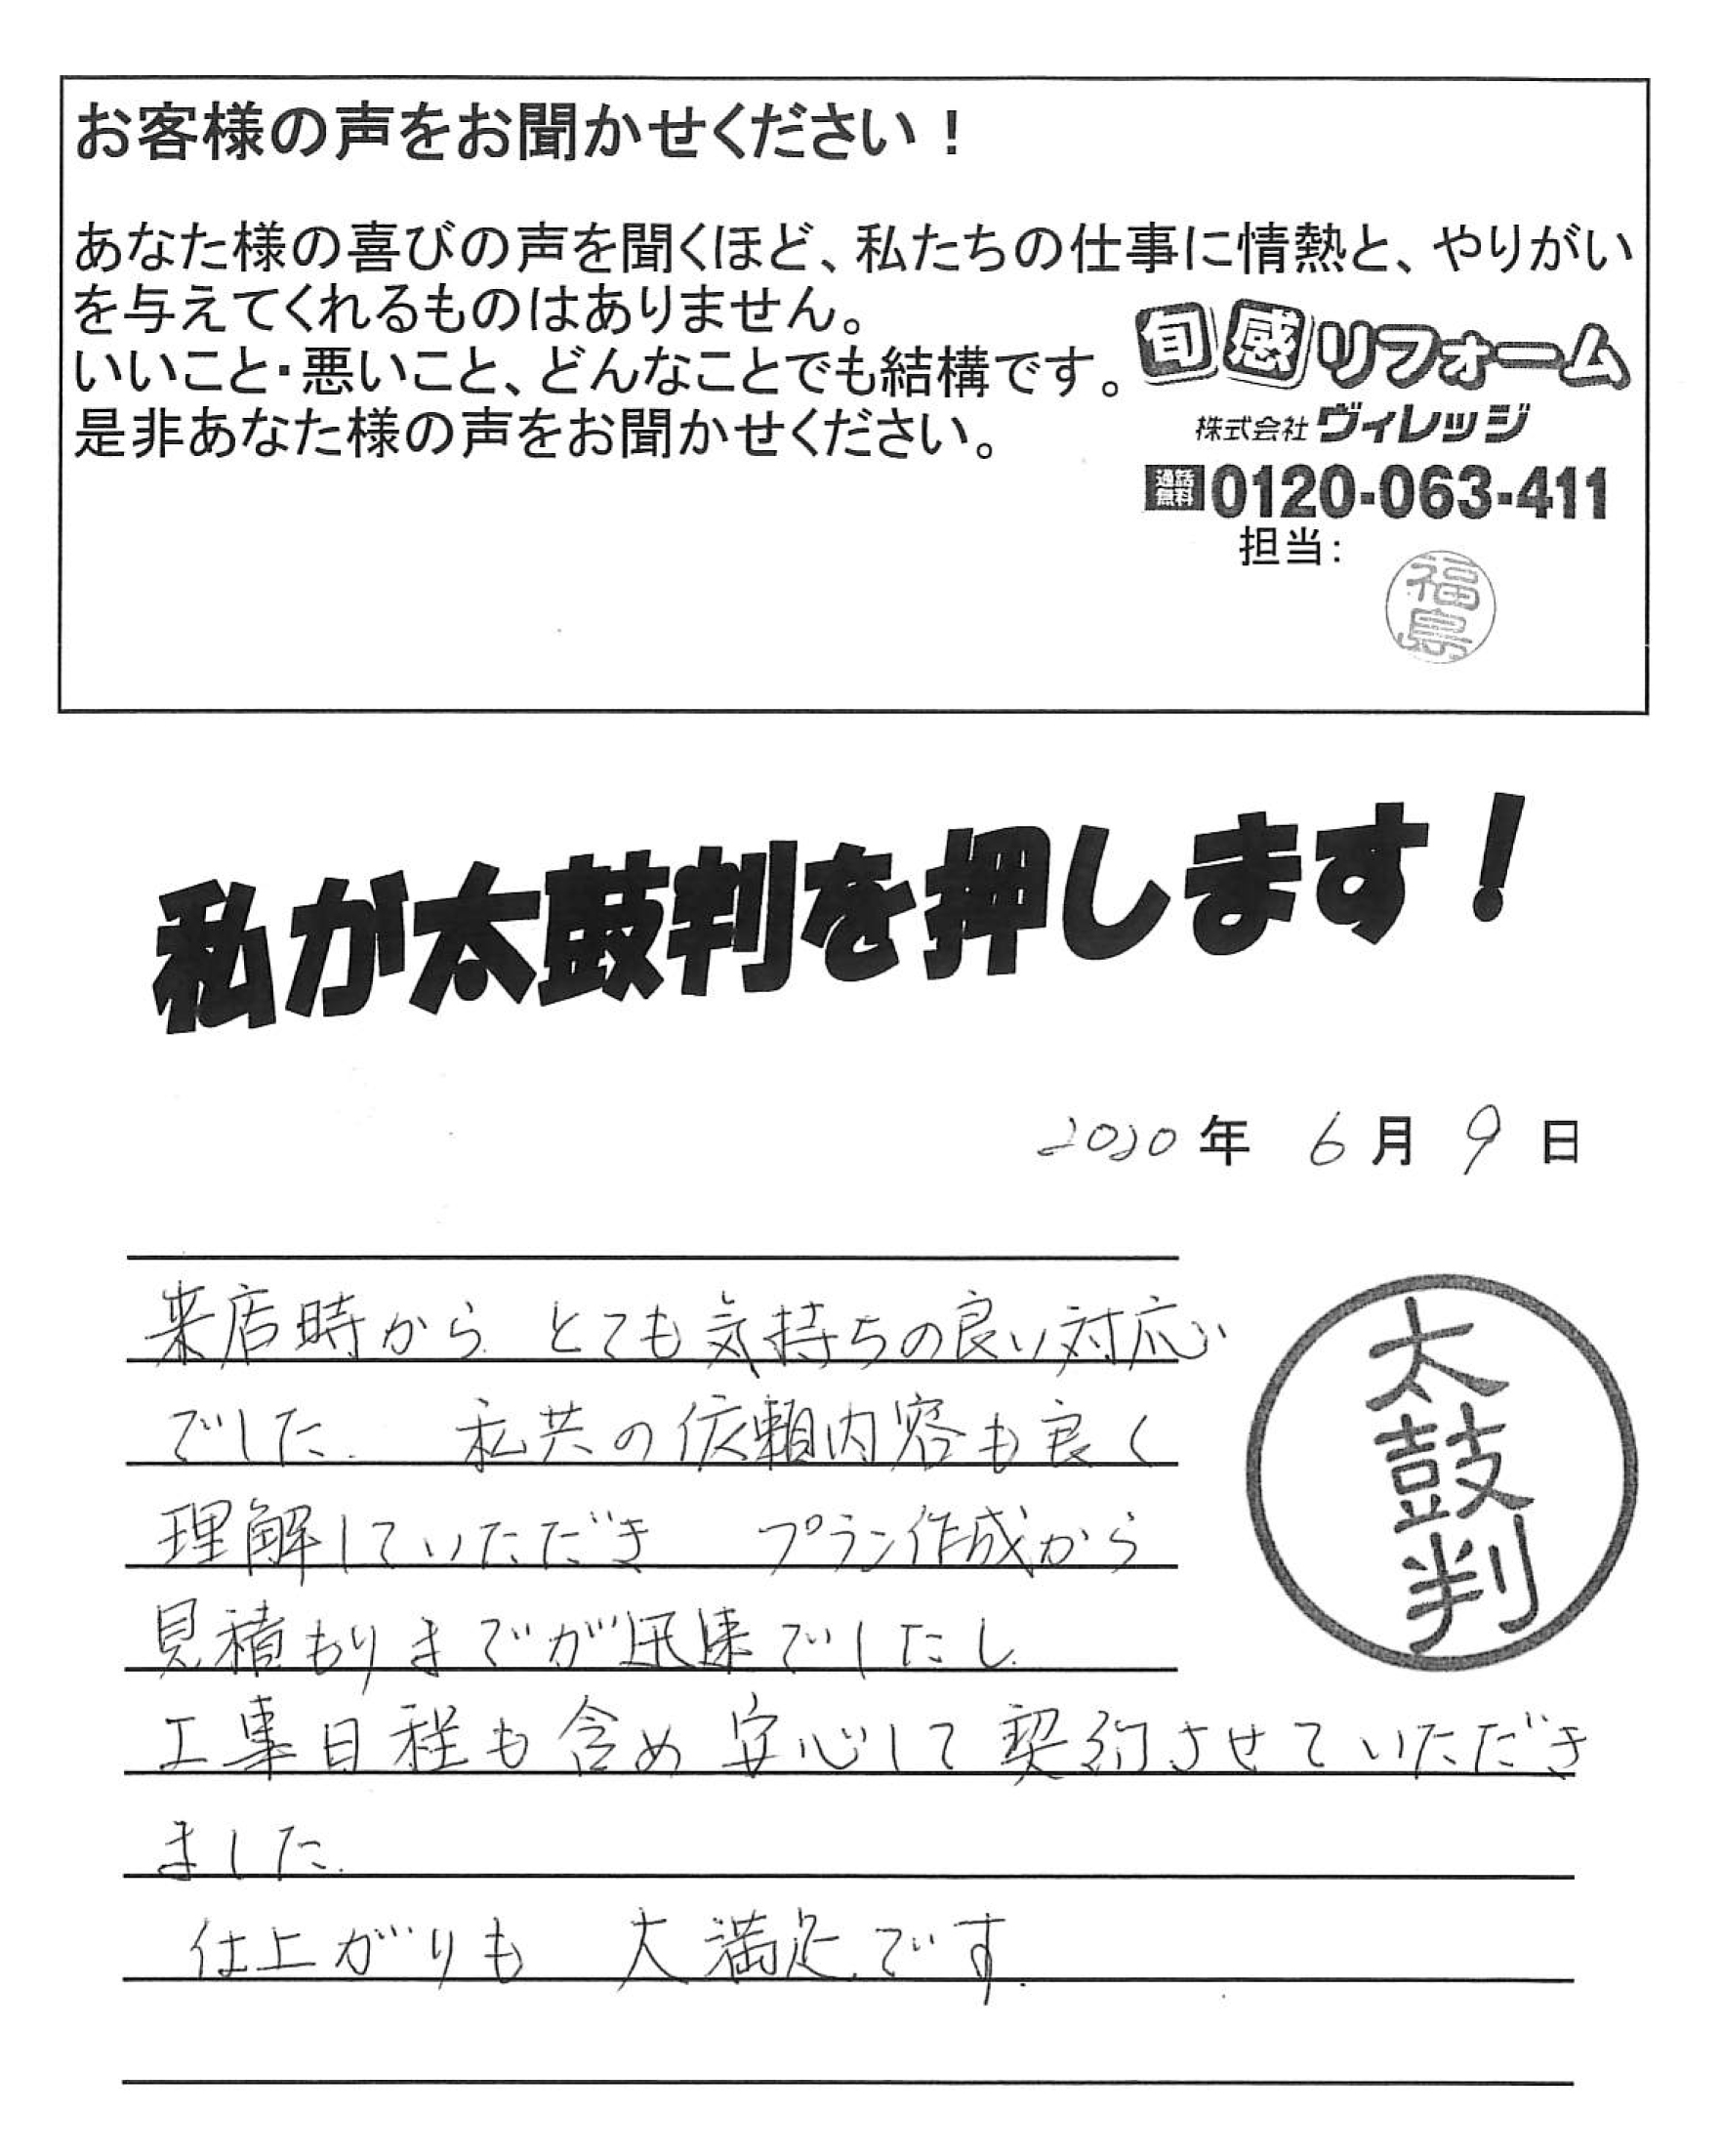 お客様の声をお聞かせください！
あなた様の喜びの声を聞くほど、私たちの仕事に情熱と、やりがい
を与えてくれるものはありません。
いいこと・悪いこと、どんなことでも結構です。
是非あなた様の声をお聞かせください。
旬感リフォーム
株式会社ヴィレッジ
通話無料 0120-063-411
担当：
福島
私が太鼓判を押します！
2020年 6月 9日
来店時から とても気持ちの良い対応
でした. 私共の依頼内容も良く
理解していただき プラン作成から
見積もりまでが迅速でしたし
工事日程も含め 安心して契約させていただき
ました.
仕上がりも 大満足です.
太鼓判